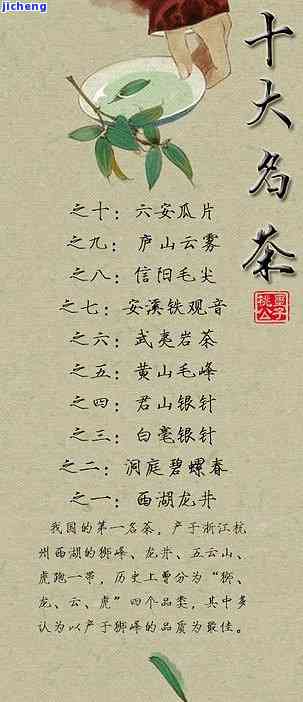 jicheng
十大名茶
桃墨
公子
之十：六安瓜片
之九：庐山云雾
之八：信阳毛尖
之七：安溪铁观音
之六：武夷岩茶
之五：黄山毛峰
之四：君山银针
之三：白毫银针
之二：洞庭碧螺春
之一：西湖龙井
我国的第一名茶，产于浙江杭
州西湖的狮峰、龙井、五云山、
虎跑一带，历史上曾分为“狮、
龙、云、虎”四个品类，其中多
认为以产于狮峰的品质为最佳。